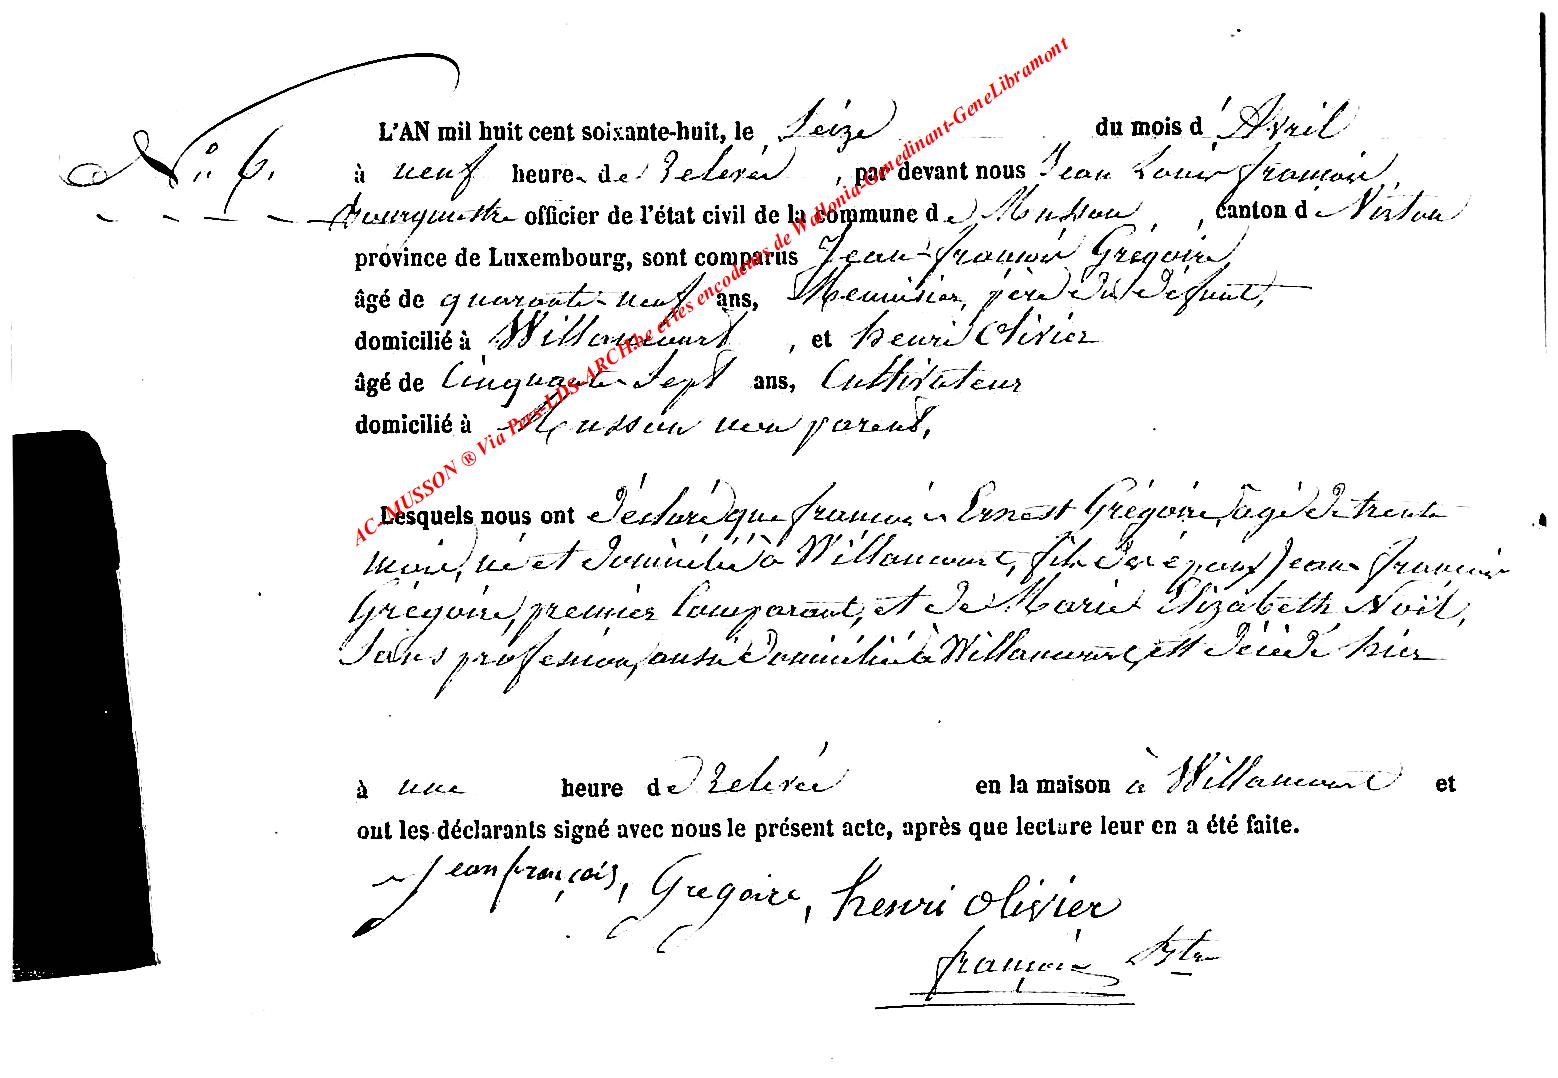 N.° 6.
L'AN mil huit cent soixante-huit, le Seize du mois d'Avril
à neuf heure de relevée, par devant nous Jean Louis françois,
bourgmestre officier de l'état civil de la commune de Musson, canton de Virton
province de Luxembourg, sont comparus Jean-françois Grégoire
âgé de quarante-neuf ans, Menuisier, père du défunt,
domicilié à Willancourt, et henri Olivier
âgé de Cinquante-Sept ans, Cultivateur
domicilié à Musson non parent,
Lesquels nous ont déclaré que françois Ernest Grégoire, âgé de trente
mois, né et domicilié à Willancourt, fils des époux Jean-françois
Grégoire, premier Comparant, et de Marie Elizabeth Noël,
Sans proffession, aussi domicilié à Willancourt, est décédé hier
à une heure de relevée en la maison à Willancourt et
ont les déclarants signé avec nous le présent acte, après que lecture leur en a été faite.
Jean françois, Gregoire, henri olivier
françois Btre
AC-MUSSON ® Via Pers-LDS-ARCH.be et les encodeurs de Wallonia-Genedinant-GeneLibramont